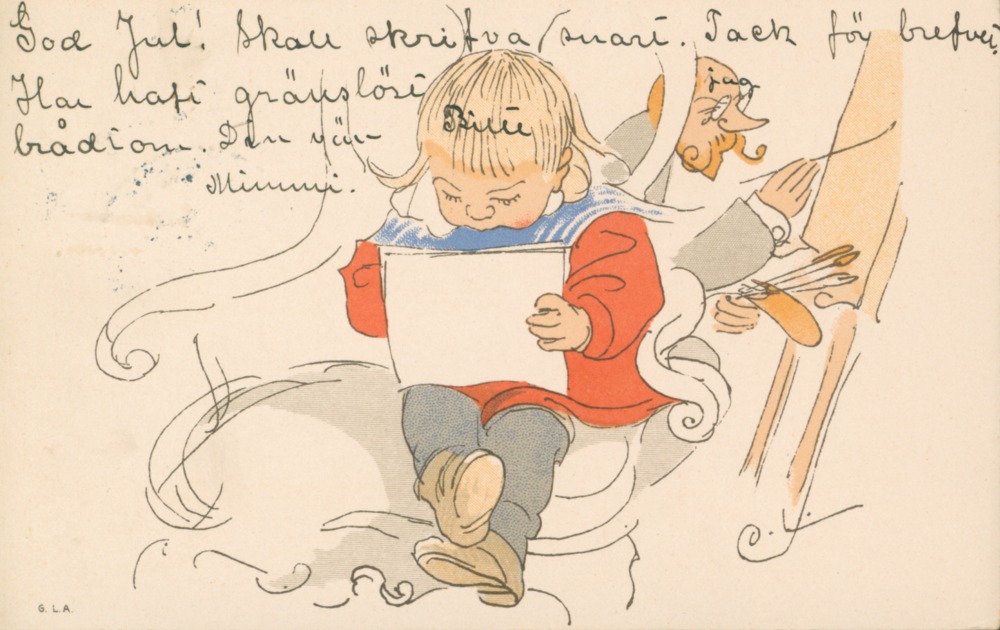 God Jul! Skall skrifva snart. Tack för brefvet,
Har haft gränslöst
brådtom. Din vän
Mimmi.
jag
Bitte
G. L. A.